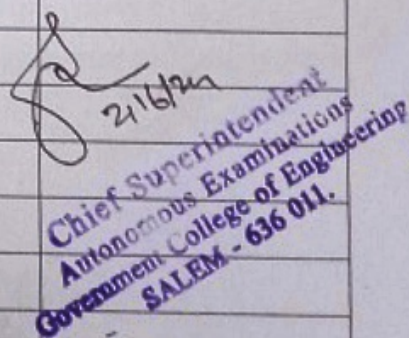 Chief Superintendent
Autonomous Examinations
Government College of Engineering
SALEM - 636 011.